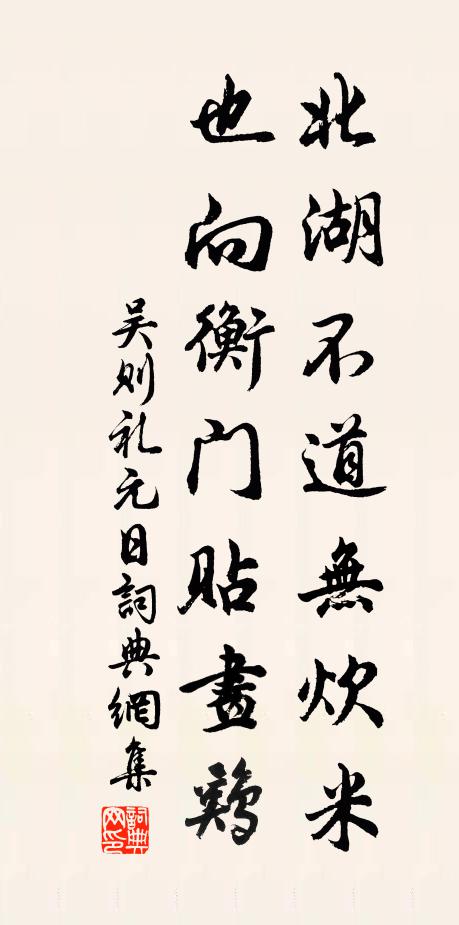 北湖不道無炊米
也向衡门貼畫鷄
吴则礼元日詞典網集
詞典网印